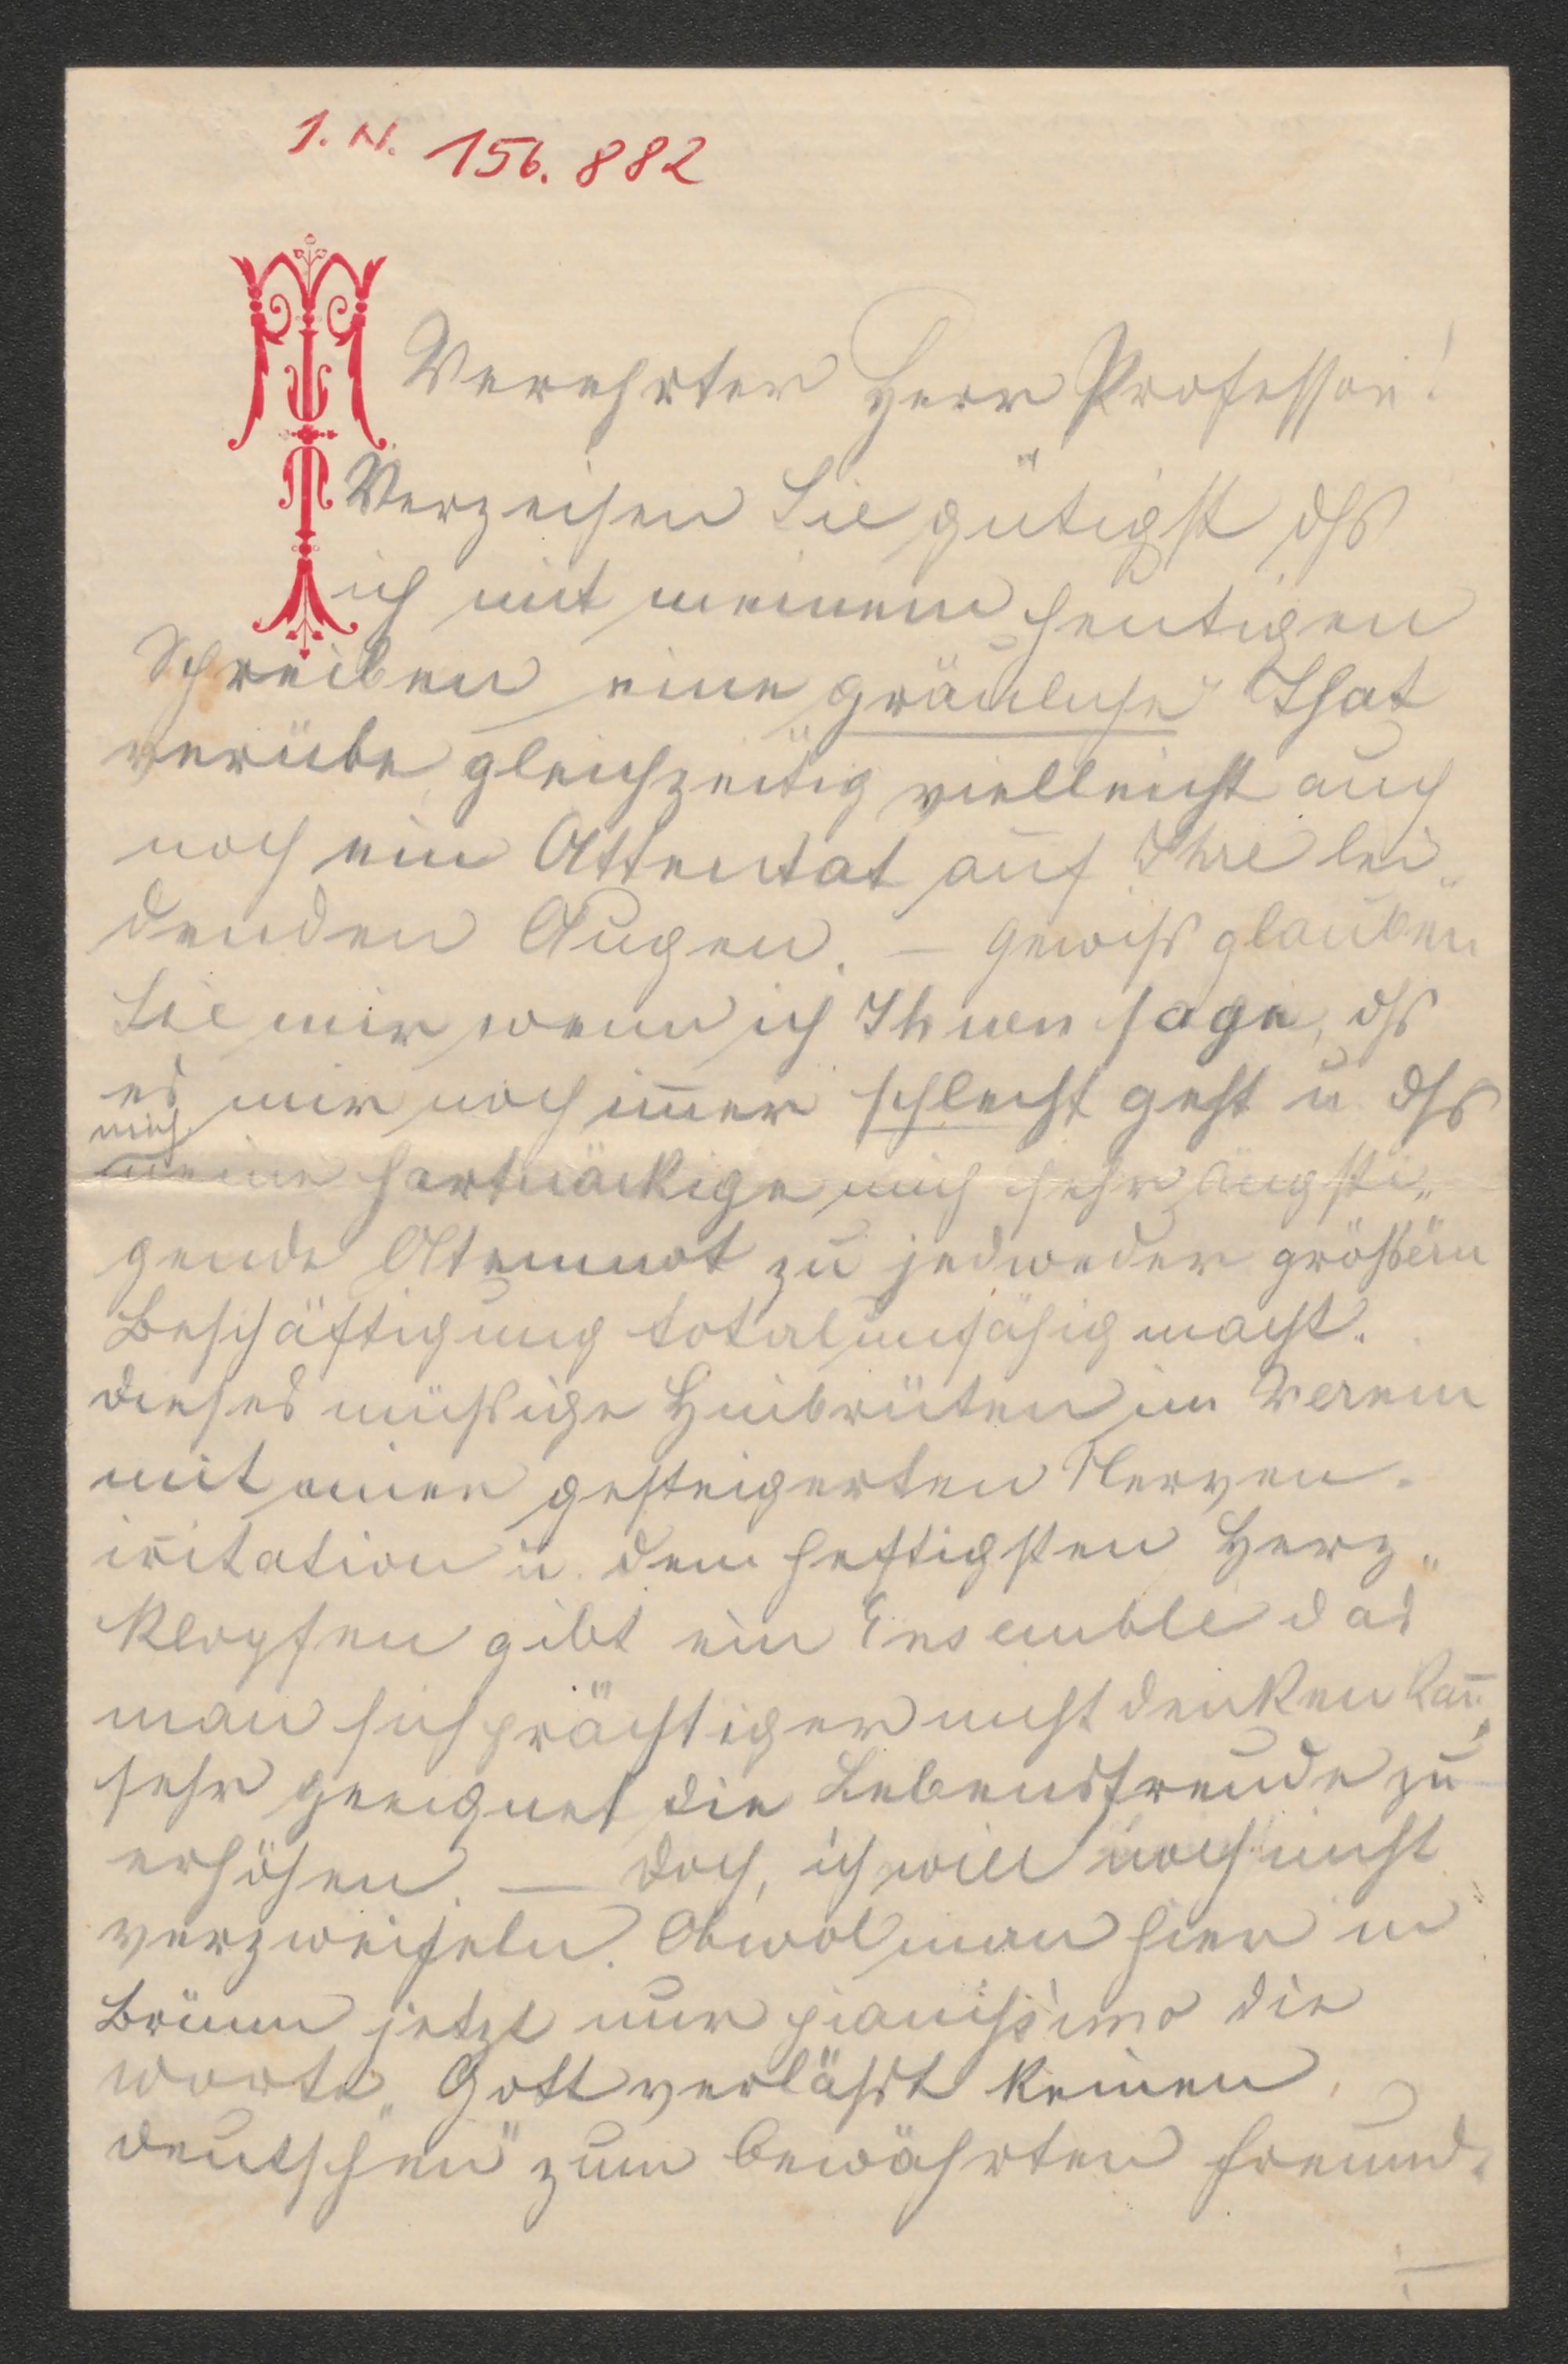 I. N. 156.882
Verehrter Herr Professor!
Verzeihen Sie gütigst dſs
ich mit meinem heutigen
Schreiben eine gräuliche That
verübe gleichzeitig vielleicht auch
noch ein Attentat auf Ihre lei„
denden Augen. – Gewiſs glauben
Sie mir wenn ich Ihnen sage, dſs
es mir noch im̄er schlecht geht u dſs
mich
meine hartnäckige mich sehr ängsti„
gende Atemnot zu jedweder größern
Beschäftigung total unfähig macht.
Dieses müßige Hinbrüten im Verein
mit einer gesteigerten Nerven-
ir̄itation u. dem heftigsten Herz„
klopfen gibt ein Ensemble das
man sich prächtiger nicht denken kan̄,
sehr geeignet die Lebensfreude zu
erhöhen. — Doch, ich will noch nicht
verzweifeln. Obwol man hier in
Brünn jetzt nur pianissimo die
Worte „Gott verläßt keinen
Deutschen" zum bewährten Freund.